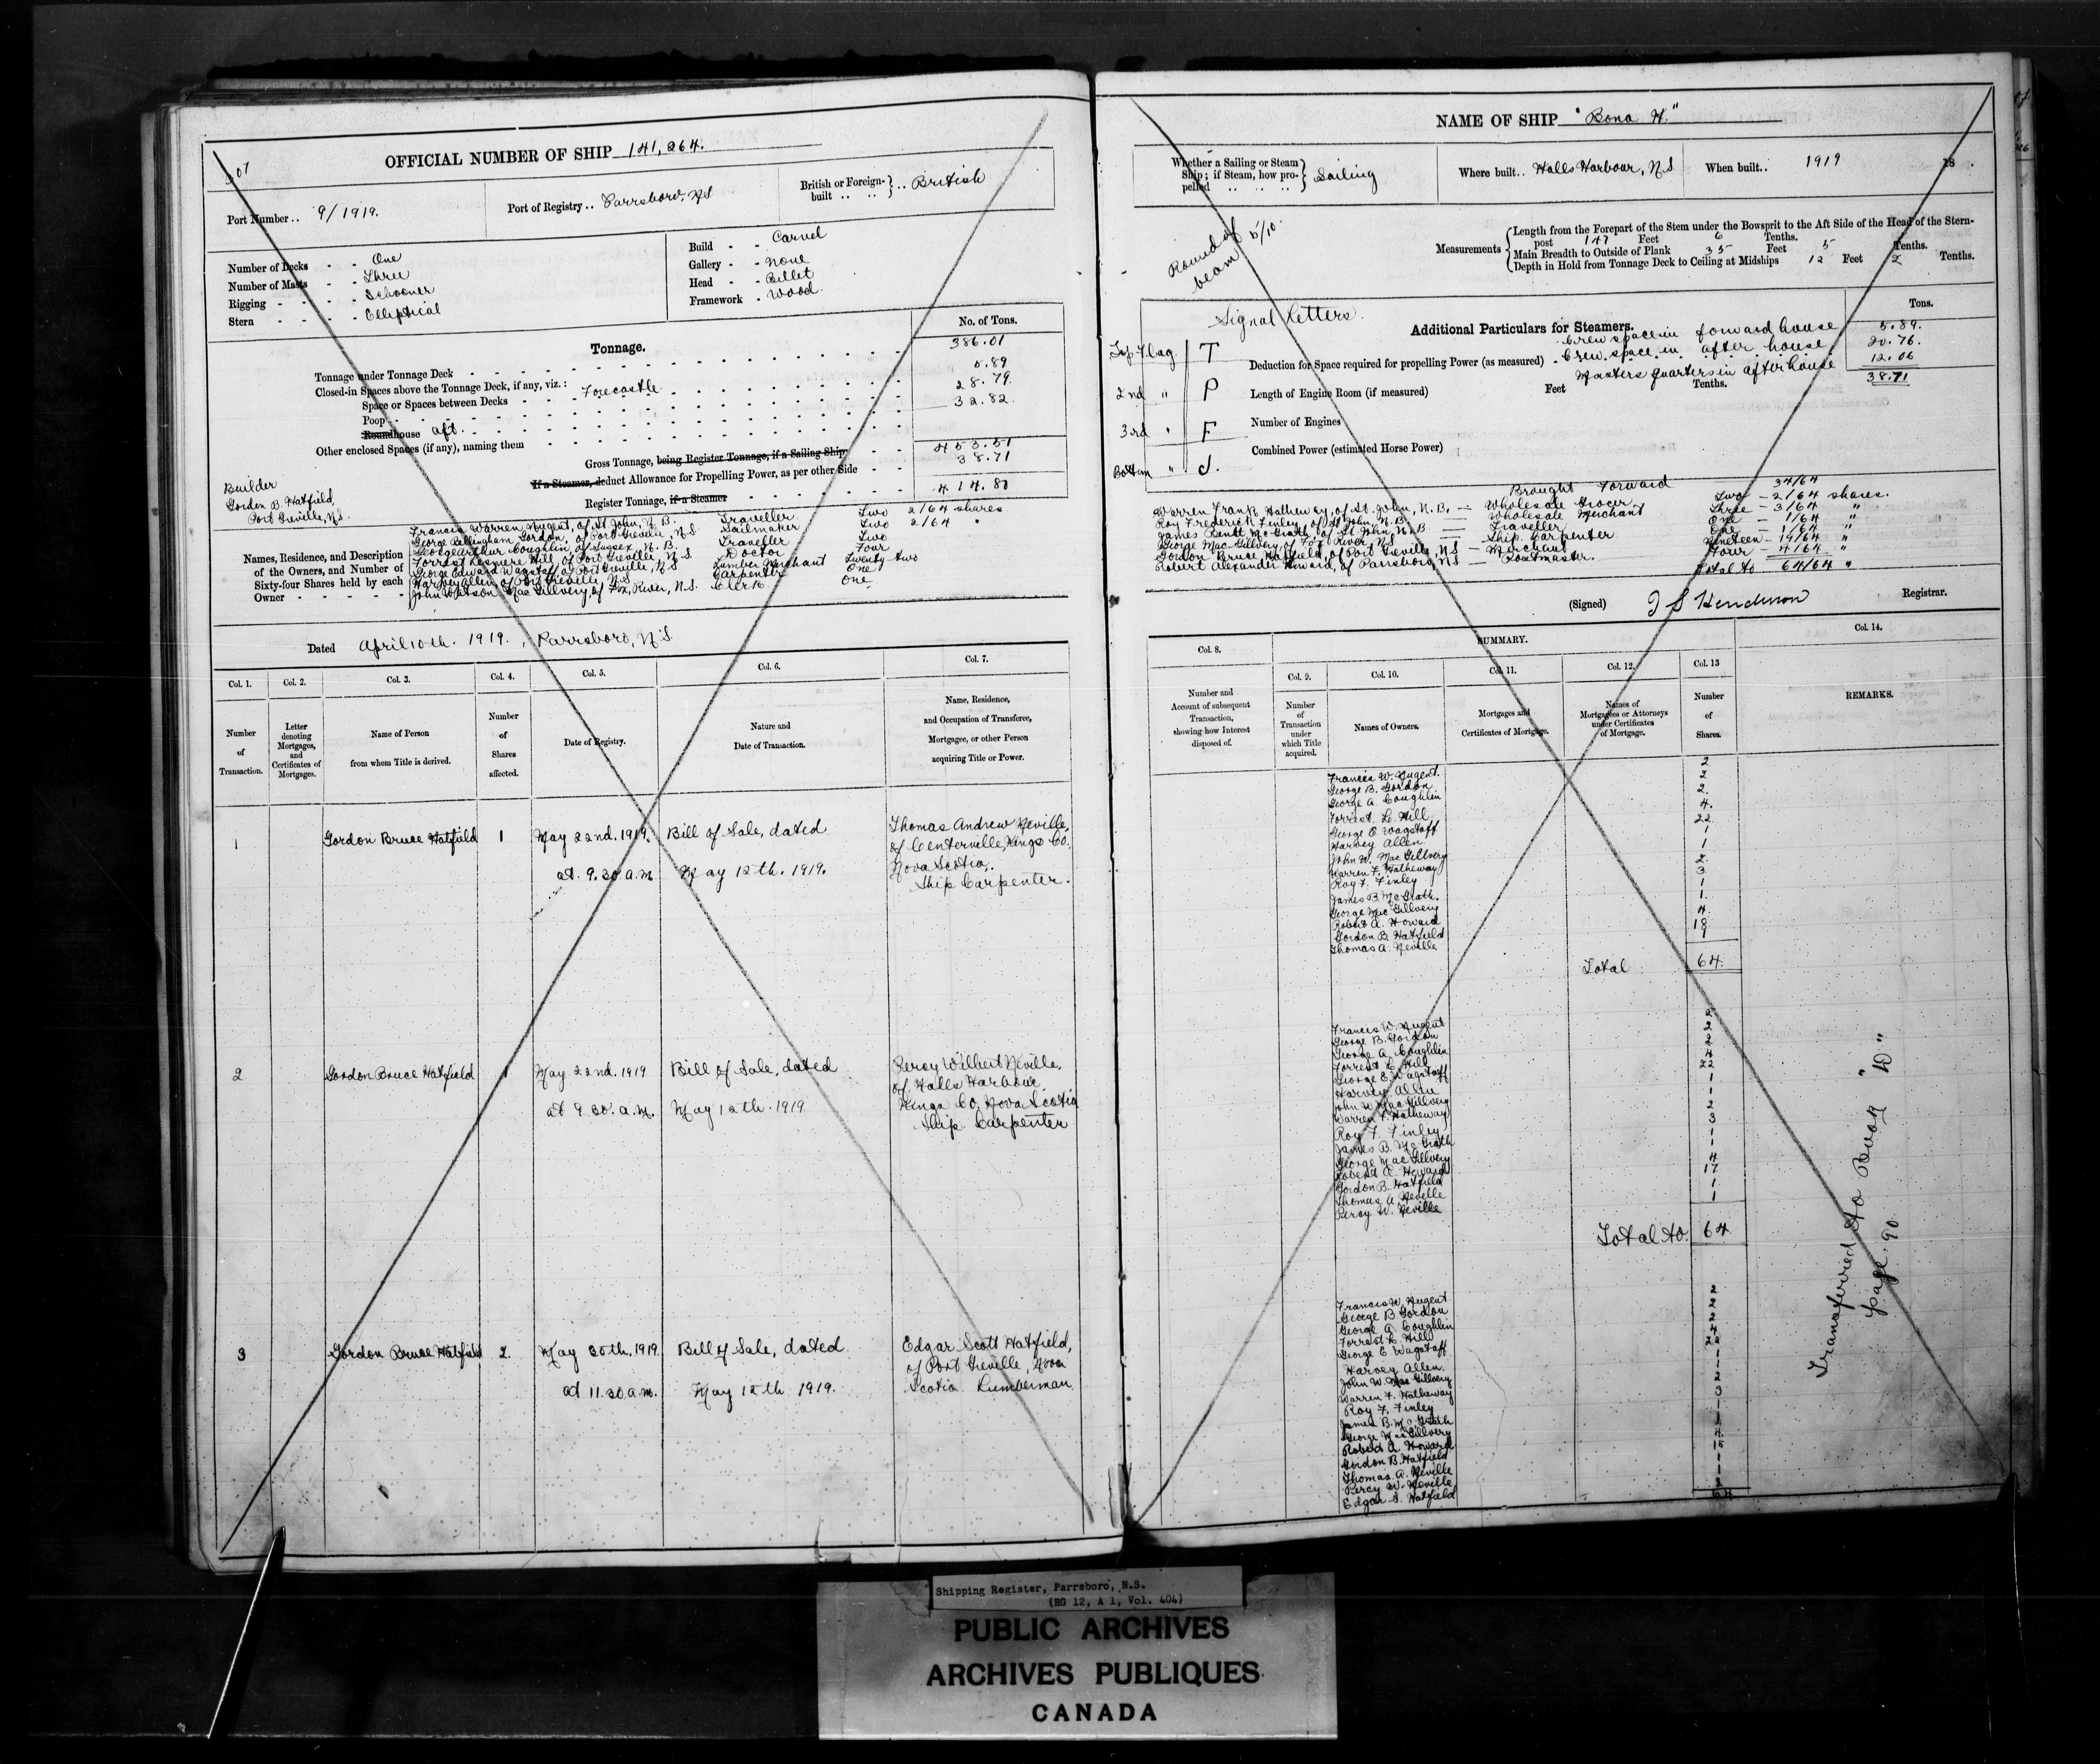 301
OFFICIAL NUMBER OF SHIP 141,264.
Port Number .. 9/1919.
Port of Registry .. Parrsboro, N.S
British or Foreign-built .. .. } .. British
Number of Decks - - One
Number of Masts - - Three
Rigging - - - - Schooner
Stern - - - - Elliptical
Build - - Carvel
Gallery - - None
Head - - Billet
Framework - Wood.
Tonnage.
No. of Tons.
Tonnage under Tonnage Deck 386.01
Closed-in Spaces above the Tonnage Deck, if any, viz.:
Space or Spaces between Decks Forecastle 5.89
Poop 28.79
Roundhouse aft. 32.82
Other enclosed Spaces (if any), naming them
Gross Tonnage, being Register Tonnage, if a Sailing Ship 453.51
If a Steamer, deduct Allowance for Propelling Power, as per other Side 38.71
Register Tonnage, if a Steamer 414.80
Builder
Gordon B. Hatfield,
Port Greville, N.S.
Names, Residence, and Description
of the Owners, and Number of
Sixty-four Shares held by each
Owner
Francis Warren Nugent, of St John, N.B. Traveller Two 2/64 shares
George Bellingham Gordon, of Port Greville, N.S Sailmaker Two 2/64 "
George Arthur Coughlin, of Sussex, N.B. Traveller Two
Forrest Lesmere Hill, of Port Greville, N.S Doctor Four
George Edward Wagstaff, of Port Greville, N.S Lumber Merchant Twenty-two
Harvey Allen, of Port Greville, N.S Carpenter One
John Watson MacGillvery, of Fox River, N.S. Clerk One
Dated April 10th. 1919., Parrsboro, N.S
Col. 1. Col. 2. Col. 3. Col. 4. Col. 5. Col. 6. Col. 7.
Number of Transaction.
Letter denoting Mortgages, and Certificates of Mortgages.
Name of Person from whom Title is derived.
Number of Shares affected.
Date of Registry.
Nature and Date of Transaction.
Name, Residence, and Occupation of Transferee, Mortgagee, or other Person acquiring Title or Power.
1 Gordon Bruce Hatfield 1 May 22nd. 1919. Bill of Sale, dated Thomas Andrew Neville,
of Centerville, Kings Co.
at 9.30 a.m May 12th. 1919. Nova Scotia,
Ship Carpenter.
2 Gordon Bruce Hatfield 1 May 22nd. 1919 Bill of Sale, dated Percy Wilbert Neville,
of Halls Harbour
at 9.30. a.m. May 12th. 1919 Kings Co, Nova Scotia
Ship Carpenter
3 Gordon Bruce Hatfield 2. May 30th, 1919. Bill of Sale, dated Edgar Scott Hatfield,
of Port Greville, Nova
at 11.30 a.m. May 12th 1919. Scotia Lumberman
NAME OF SHIP "Bona H."
Whether a Sailing or Steam Ship; if Steam, how propelled .. .. .. } Sailing
Where built .. Halls Harbour, N.S
When built .. 1919 18 .
Round of beam 5/10
Measurements
Length from the Forepart of the Stem under the Bowsprit to the Aft Side of the Head of the Stern-
post 147 Feet 6 Tenths.
Main Breadth to Outside of Plank 35 Feet 5 Tenths.
Depth in Hold from Tonnage Deck to Ceiling at Midships 12 Feet 2 Tenths.
Signal Letters.
Top Flag T
2nd " P
3rd " F
Bottom " J.
Additional Particulars for Steamers.
Tons.
Crew space in forward house 5.89.
Deduction for Space required for propelling Power (as measured) - Crew space in after house 20.76.
Masters quarters in after house 12.06
38.71
Length of Engine Room (if measured) Feet Tenths.
Number of Engines
Combined Power (estimated Horse Power)
Brought Forward 34/64
Warren Frank Hatheway, of St. John, N.B. — Wholesale Grocer Two — 2/64 shares.
Roy Frederick Finley, of St John, N.B. — Wholesale Merchant Three — 3/64 "
James McGrath, of St John, N.B — Traveller One — 1/64 "
George MacGillvery, of Fox River, N.S — Ship Carpenter One — 1/64 "
Gordon Bruce Hatfield, of Port Greville, N.S — Merchant Nineteen — 19/64 "
Robert Alexander Howard, of Parrsboro, N.S — Postmaster. Four — 4/64 "
Total to 64/64 "
(Signed) J S Henderson Registrar.
Col. 8. SUMMARY. Col. 14.
Col. 9. Col. 10. Col. 11. Col. 12. Col. 13
Number and Account of subsequent Transaction, showing how Interest disposed of.
Number of Transaction under which Title acquired.
Names of Owners.
Mortgages and Certificates of Mortgage.
Names of Mortgagees or Attorneys under Certificates of Mortgage.
Number of Shares.
REMARKS.
Francis W. Nugent. 2
George B. Gordon 2
George A Coughlin 2.
Forrest L. Hill 4.
George E Wagstaff 22
Harvey Allen 1
John W. MacGillvery 1
Warren F. Hatheway 2.
Roy F. Finley 3
James B. McGrath. 1
George MacGillvery 1.
Robert A. Howard 4
Gordon B. Hatfield 18
Thomas A. Neville 1
Total 64
Francis W. Nugent 2
George B. Gordon 2
George A. Coughlin 2
Forrest L. Hill 4
George E. Wagstaff 22
Harvey Allen 1
John W. MacGillvery 1
Warren F. Hatheway 2
Roy F. Finley 3
James B. McGrath 1
George MacGillvery 1
Robert A. Howard 4
Gordon B. Hatfield 17
Thomas A. Neville 1
Percy W. Neville 1
Total to. 64
Francis W. Nugent 2
George B. Gordon 2
George A. Coughlin 2
Forrest L. Hill 4
George E Wagstaff 22
Harvey Allen. 1
John W. MacGillvery 1
Warren F. Hatheway 2
Roy F. Finley 3
James B. McGrath 1
George MacGillvery 1
Robert A. Howard 4
Gordon B. Hatfield 15
Thomas A. Neville 1
Percy W. Neville 1
Edgar S. Hatfield 2
64
Transferred to Book "D"
page. 90
Shipping Register, Parrsboro, N.S.
(RG 12, A 1, Vol. 404)
PUBLIC ARCHIVES
ARCHIVES PUBLIQUES
CANADA